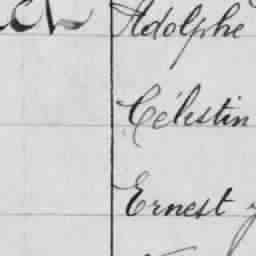 Adolphe
Célestin
Ernest